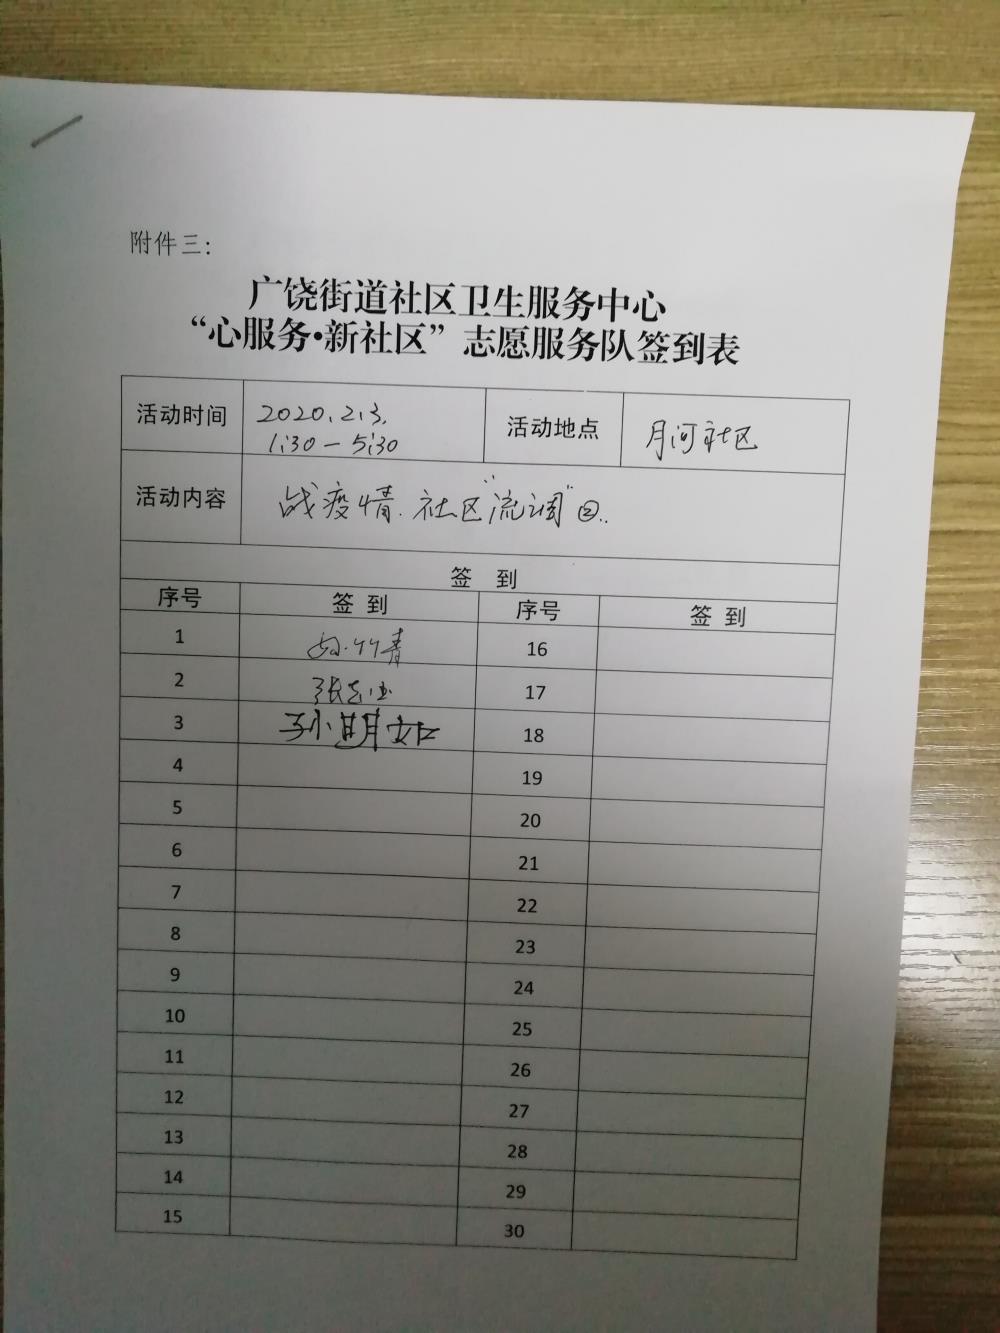 附件三：
广饶街道社区卫生服务中心
“心服务·新社区”志愿服务队签到表
活动时间 2020.2.3. 活动地点 月河社区
1:30－5:30
活动内容 战疫情.社区“流调”②..
签 到
序号 签 到 序号 签 到
1 竹青 16
2 张志 17
3 孙明如 18
4 19
5 20
6 21
7 22
8 23
9 24
10 25
11 26
12 27
13 28
14 29
15 30